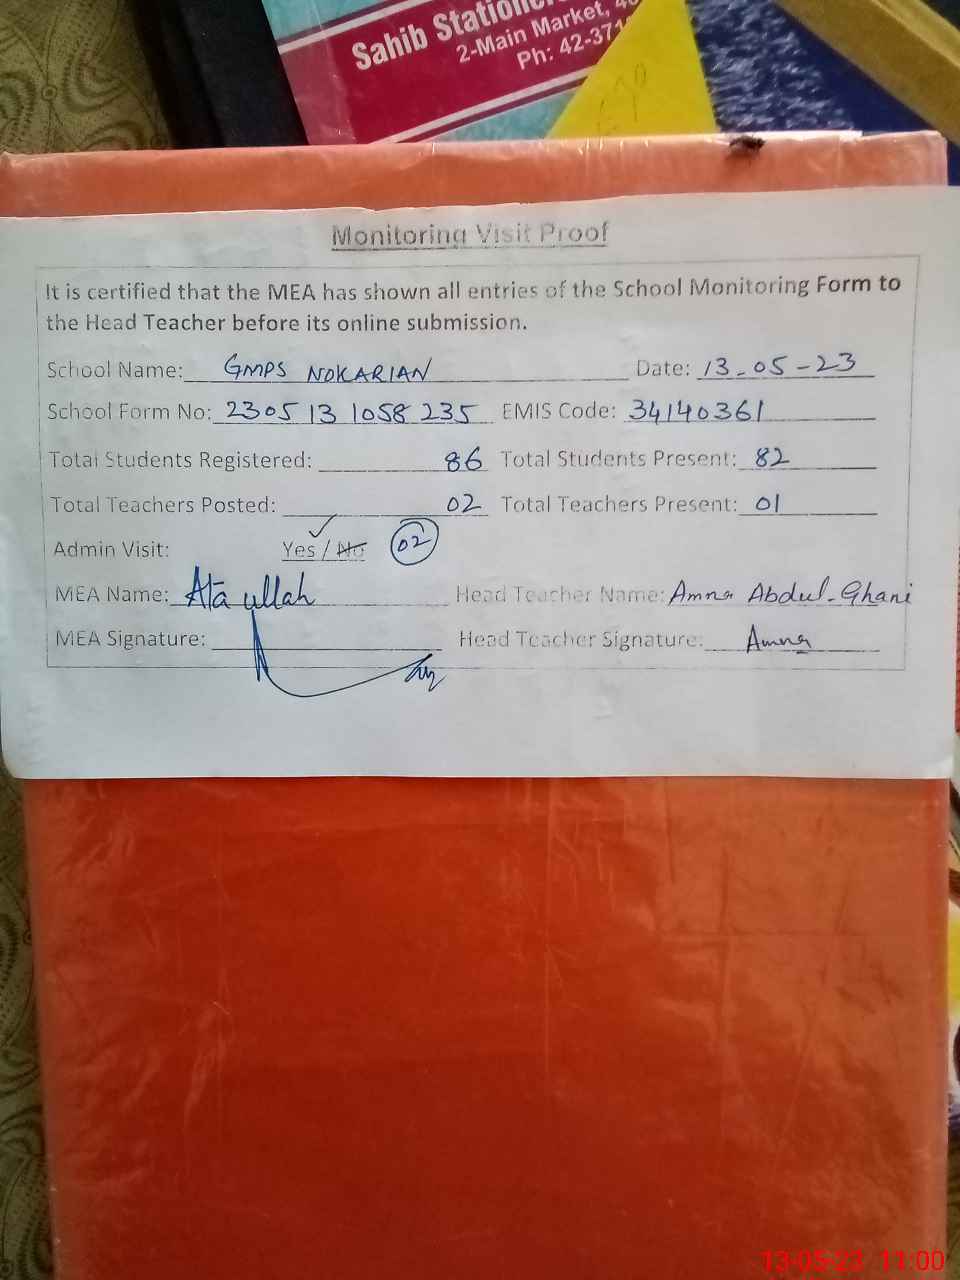 Sahib Station
2-Main Market,
Ph: 42-371
Monitoring Visit Proof
It is certified that the MEA has shown all entries of the School Monitoring Form to
the Head Teacher before its online submission.
School Name: GMPS NOKARIAN Date: 13-05-23
School Form No: 2305 13 1058 235 EMIS Code: 34140361
Total Students Registered: 86 Total Students Present: 82
Total Teachers Posted: 02 Total Teachers Present: 01
Admin Visit: Yes / No 02
MEA Name: Ata ullah Head Teacher Name: Amna Abdul-Ghani
MEA Signature: Head Teacher Signature: Amna
13-05-23 11:00